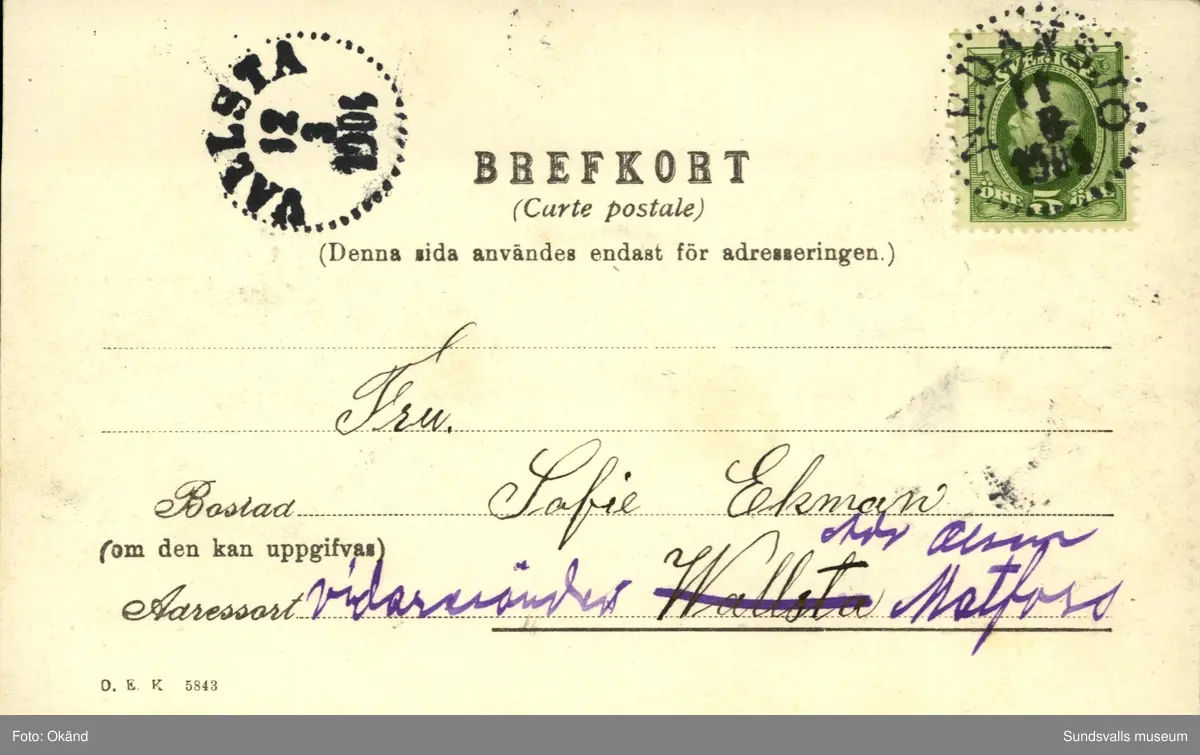 VALLSTA
12
3
190
SVERIGE
11
3
ÖRE 5 ÖRE
BREFKORT
(Carte postale)
(Denna sida användes endast för adresseringen.)
Fru.
Bostad Sofie Ekman
adr Olsson
(om den kan uppgifvas)
Adressort Wallsta Matfors
O. E. K 5843
Foto: Okänd
Sundsvalls museum